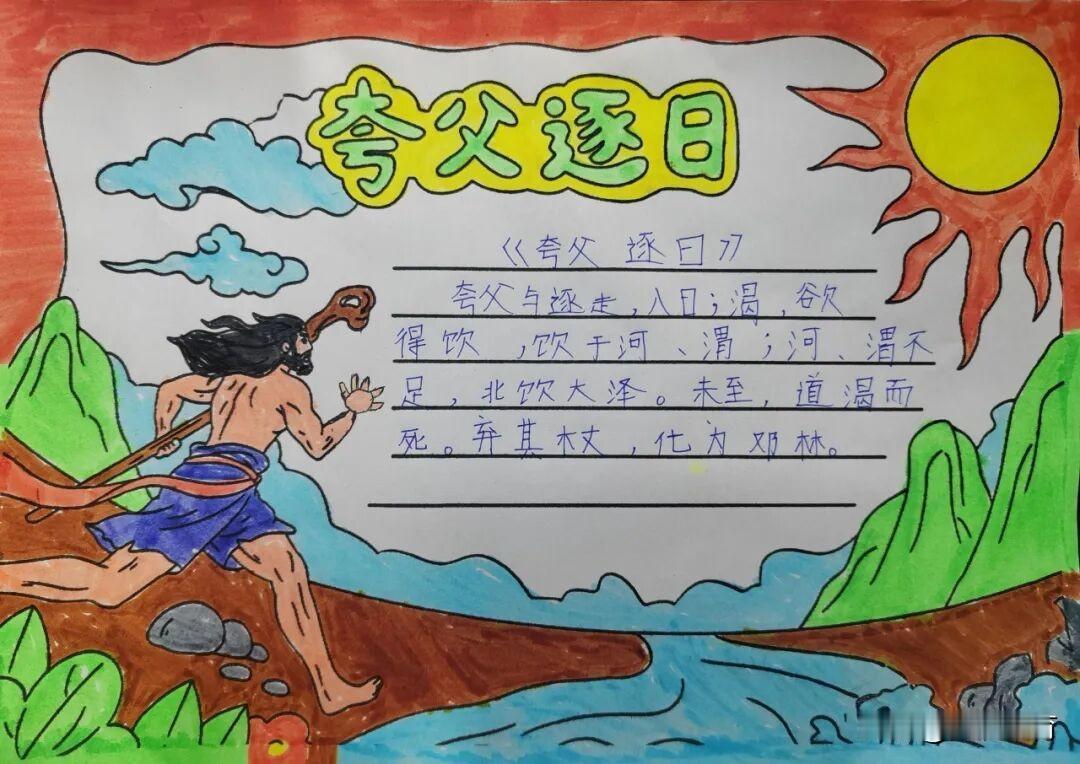 夸父逐日
《夸父逐日》
夸父与逐走,入日;渴,欲
得饮,饮于河、渭;河、渭不
足,北饮大泽。未至,道渴而
死。弃其杖,化为邓林。